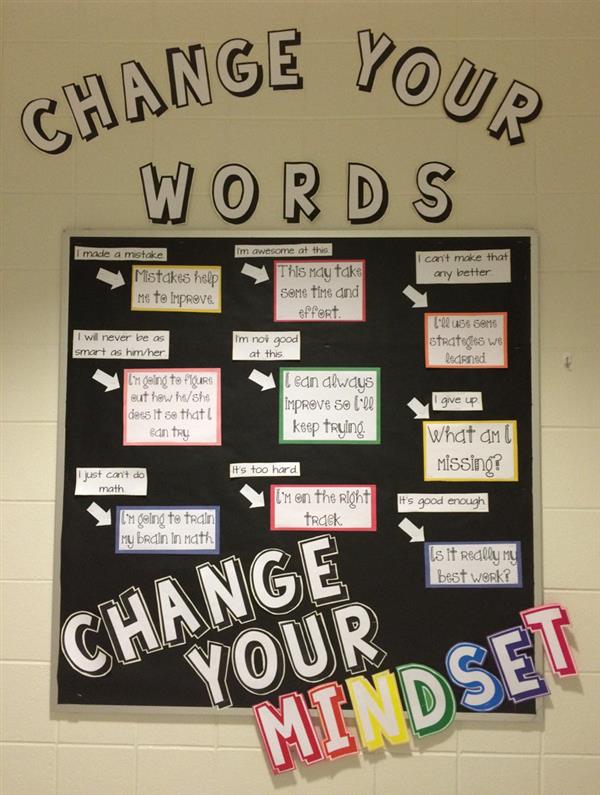 CHANGE YOUR
WORDS
I made a mistake.
Mistakes help
me to improve.
I'm awesome at this.
This may take
some time and
effort.
I can't make that
any better.
I'll use some
strategies we
learned.
I will never be as
smart as him/her.
I'm going to figure
out how he/she
does it so that I
can try.
I'm not good
at this.
I can always
improve so I'll
keep trying.
I give up
What am I
missing?
I just can't do
math.
I'm going to train
my brain in math.
It's too hard.
I'm on the right
track.
It's good enough.
Is it really my
best work?
CHANGE
YOUR
MINDSET